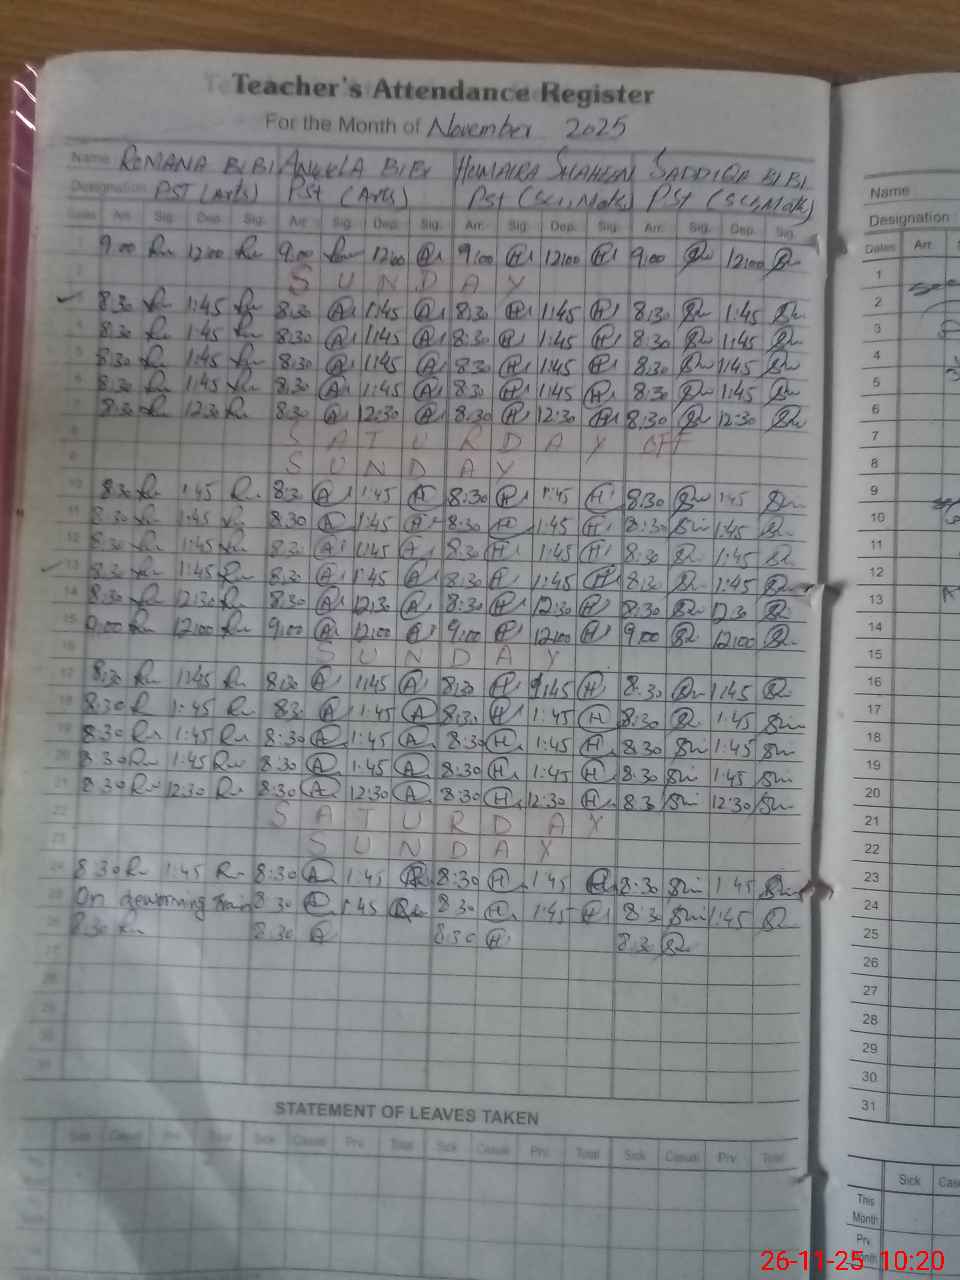 Teacher's Attendance Register
For the Month of November 2025
Name ROMANA BIBI ANGELA BIBI HUMAIRA SHAHEEN SADDIQA BIBI
Designation PST (Arts) PSt (Arts) Pst (Sci, Math) PSt (Sci, Math)
Dates Arr. Sig. Dep. Sig. Arr. Sig. Dep. Sig. Arr. Sig. Dep. Sig. Arr. Sig. Dep. Sig.
1 9.00 12:00 9.00 12:00 9:00 12:00 9:00 12:00
2 S U N D A Y
3 8:30 1:45 8:30 1:45 8:30 1:45 8:30 1:45
4 8:30 1:45 8:30 1:45 8:30 1:45 8:30 1:45
5 8:30 1:45 8:30 1:45 8:30 1:45 8:30 1:45
6 8:30 1:45 8:30 1:45 8:30 1:45 8:30 1:45
7 8:30 12:30 8:30 12:30 8:30 12:30 8:30 12:30
8 S A T U R D A Y OFF
9 S U N D A Y
10 8:30 1:45 8:30 1:45 8:30 1:45 8:30 1:45
11 8:30 1:45 8:30 1:45 8:30 1:45 8:30 1:45
12 8:30 1:45 8:30 1:45 8:30 1:45 8:30 1:45
13 8:30 1:45 8:30 1:45 8:30 1:45 8:30 1:45
14 8:30 12:30 8:30 12:30 8:30 12:30 8:30 12:30
15 9:00 12:00 9:00 12:00 9:00 12:00 9:00 12:00
16 S U N D A Y
17 8:30 1:45 8:30 1:45 8:30 1:45 8:30 1:45
18 8:30 1:45 8:30 1:45 8:30 1:45 8:30 1:45
19 8:30 1:45 8:30 1:45 8:30 1:45 8:30 1:45
20 8:30 1:45 8:30 1:45 8:30 1:45 8:30 1:45
21 8:30 12:30 8:30 12:30 8:30 12:30 8:3 12:30
22 S A T U R D A Y
23 S U N D A Y
24 8:30 1:45 8:30 1:45 8:30 1:45 8:30 1:45
25 On deworming Train 8:30 1:45 8:30 1:45 8:3 1:45
26 8:30 8:30 8:30 8:3
27
28
29
30
31
STATEMENT OF LEAVES TAKEN
Sick Casual Prv. Total Sick Casual Prv. Total Sick Casual Prv. Total Sick Casual Prv. Total
Name
Designation
Dates Arr.
1
2
3
4
5
6
7
8
9
10
11
12
13
14
15
16
17
18
19
20
21
22
23
24
25
26
27
28
29
30
31
Sick Cas
This Month
Prv. Month
26-11-25 10:20